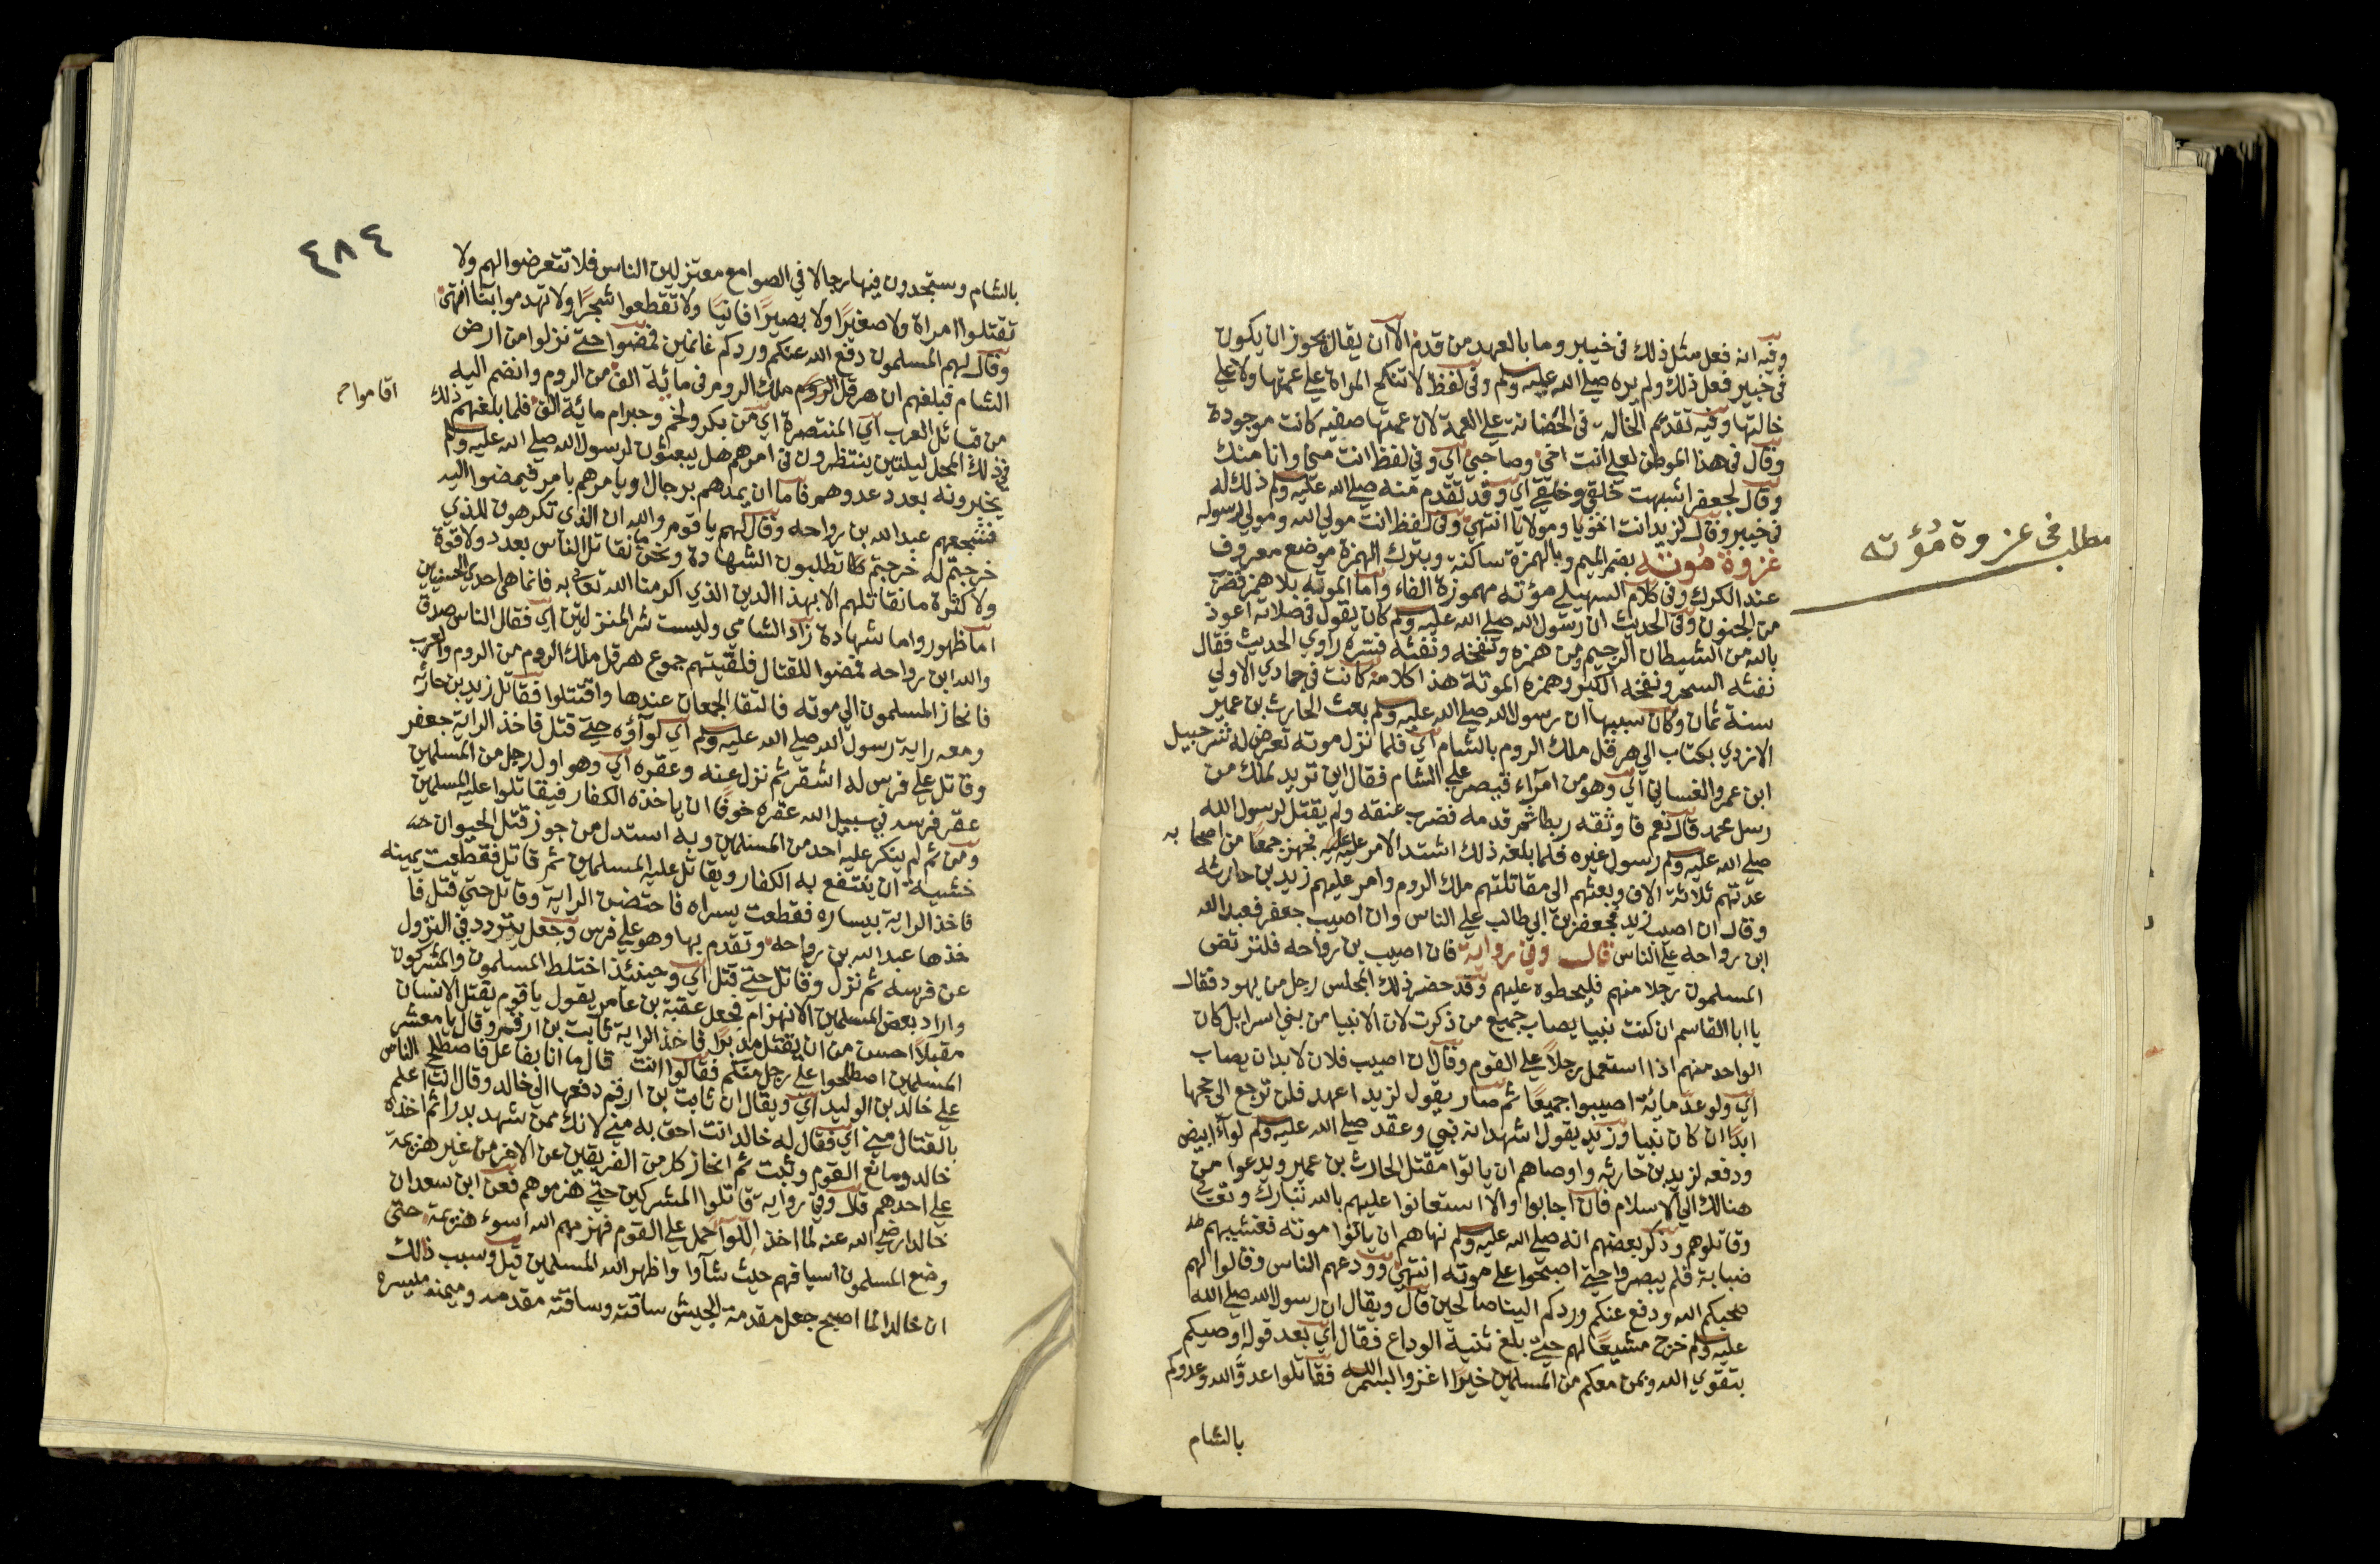 وفيه انه فعل مثل ذلك فى خيبر وما بالعهد من قدم الا ان يقال يجوز ان يكون
فى خيبر فعل ذلك ولم يره صلى الله عليه وسلم وفى لفظ لا تنكح المراة على عمتها ولا على
خالتها وفيه تقدم الخالة فى الحضانة على العمة لان عمتها صفيه كانت موجودة
وقال فى هذا الموطن لعلى انت اخى وصاحبى اي وفي لفظ انت منى وانا منك
وقال لجعفر اشبهت خلقى وخلقى اي وقد تقدم منه صلى الله عليه وسلم ذلك له
فى خيبر وقال لزيد انت اخونا ومولانا انتهى وفى لفظ انت مولى الله ومولى رسوله
غزوة مؤتة بضم الميم وبالهمزة ساكنة وبترك الهمزة موضع معروف
مطلب فى غزوة مُؤته
عند الكرك وفى كلام السهيلى مؤته مهموزة الفاء واما الموتة بلا همز فضرب
من الجنون وفى الحديث ان رسول الله صلى الله عليه وسلم كان يقول فى صلاته اعوذ
بالله من الشيطان الرجيم من همزه ونفخه ونفثه فسره راوي الحديث فقال
نفثه السحر ونفخه الكبر وهمزه الموتة هذا كلامه كانت فى جمادي الاولى
سنة ثمان وكان سببها ان رسول الله صلى الله عليه وسلم بعث الحارث بن عمير
الازدي بكتاب الى هرقل ملك الروم بالشام اي فلما نزل موته تعرض له شرحبيل
ابن عمرو الغسانى اي وهو من امرآء قيصر على الشام فقال اين تريد لعلك من
رسل محمد قال نعم فاوثقه ربطا ثم قدمه فضرب عنقه ولم يقتل لرسول الله
صلى الله عليه وسلم رسول غيره فلما بلغه ذلك اشتد الامر عليه فجهز جمعًا من اصحابه
عدتهم ثلاثة الاف وبعثهم الى مقاتلتهم ملك الروم وامر عليهم زيد بن حارثه
وقال ان اصيب زيد فجعفر بن ابي طالب على الناس وان اصيب جعفر فعبد الله
ابن رواحه على الناس قال وفى رواية فان اصيب بن رواحه فليرتض
المسلمون برجلا منهم فليجعلوه عليهم وقد حضر ذلك المجلس رجل من يهود فقال
يا ابا القاسم ان كنت نبيا يصاب جميع من ذكرت لان الانبيا من بنى اسرايل كان
الواحد منهم اذا استعمل رجلاً على القوم وقال ان اصيب فلان لابد ان يصاب
اي ولو عد مائة اصيبوا جميعًا ثم صار يقول لزيد اعهد فلن ترجع الى
ابدًا ان كان نبيا وزيد يقول اشهد انه نبى وعقد صلى الله عليه وسلم لوآء ابيض
ودفعه لزيد بن حارثه واوصاهم ان ياتوا مقتل الحارث بن عمير ويدعوا من
هنالك الى الاسلام فان اجابوا والا استعانوا عليهم بالله تبارك وتعالى
وقاتلوهم وذكر بعضهم انه صلى الله عليه وسلم نهاهم ان ياتوا موته فغشيهم
ضبابة فلم يبصروا حتى اصبحوا على موته انتهى وودعهم الناس وقالوا لهم
صحبكم الله ودفع عنكم وردكم الينا صالحين قال ويقال ان رسول الله صلى الله
عليه وسلم خرج مشيعًا لهم حتى بلغ ثنية الوداع فقال اي بعد قوله اوصيكم
بتقوي الله وبمن معكم من المسلمين خيرًا اغزوا بسم الله فقاتلوا عدوّ الله وعدوكم
بالشام
٤٨٤
بالشام وستجدون فيها رجالا في الصوامع معتزلين الناس فلا تتعرضوا لهم ولا
تقتلوا امراة ولا صغيرًا ولا بصيرًا فانيًا ولا تقطعوا شجرًا ولا تهدموا بنآ انتهى
وقال لهم المسلمون دفع الله عنكم وردكم غانمين فمضوا حتى نزلوا من ارض
الشام فبلغهم ان هرقل ملك الروم فى مائة الف من الروم وانضم اليه
من قبائل العرب اي المنتصرة اي من بكر ولخم وجذام مائة الف فلما بلغهم ذلك
اقاموا
فى ذلك المحل ليلتين ينتظرون فى امرهم هل يبعثون لرسول الله صلى الله عليه وسلم
يخبرونه بعدد عدوهم فاما ان يمدهم برجال او يامرهم بامر فيمضوا اليه
فشجعهم عبد الله بن رواحه وقال لهم يا قوم والله ان الذى تكرهون للذي
خرجتم له خرجتم تطلبون الشهادة ونحن ما نقاتل الناس بعدد ولا قوة
ولا كثرة ما نقاتلهم الا بهذا الدين الذي اكرمنا الله تعالى به فانما هى احدى الحسنيين
اما ظهور واما شهادة زاد الشامي وليست شر المنزلتين اي فقال الناس صدق
والله ابن رواحه فمضوا للقتال فلقيتهم جموع هرقل ملك الروم من الروم والعرب
فانحاز المسلمون الى موته فالتقا الجمعان عندها واقتتلوا فقاتل زيد بن حارثه
ومعه راية رسول الله صلى الله عليه وسلم اي لوآؤه حتى قتل فاخذ الراية جعفر
وقاتل على فرس له اشقر ثم نزل عنه وعقره اي وهو اول رجل من المسلمين
عقر فرسه فى سبيل الله عقره خوفًا ان ياخذه الكفار فيقاتلوا عليه المسلمين
ومن ثم لم ينكر عليه احد من المسلمين وبه استدل من جوز قتل الحيوان
خشية ان ينتفع به الكفار ويقاتل عليه المسلمين ثم قاتل فقطعت يمينه
فاخذ الراية بيساره فقطعت يسراه فاحتضن الراية وقاتل حتى قتل فا
خذها عبد الله بن رواحه وتقدم بها وهو على فرس وجعل يتردد فى النزول
عن فرسه ثم نزل وقاتل حتى قتل اي وحينئذ اختلط المسلمون والمشركون
واراد بعض المسلمين الانهزام فجعل عقبة بن عامر يقول يا قوم يقتل الانسان
مقبلاً احسن من ان يقتل مدبرًا فاخذ الراية ثابت بن ارقم وقال يا معشر
المسلمين اصطلحوا على رجل منكم فقالوا انت قال ما انا بفاعل فاصطلح الناس
على خالد بن الوليد اي ويقال ان ثابت بن ارقم دفعها الى خالد وقال انت اعلم
بالقتال منى اي فقال له خالد انت احق به منى لانك ممن شهد بدرا ثم اخذه
خالد ومانع القوم وثبت ثم انحاز كل من الفريقين عن الاخر من غير هزيمة
على احدهم قال وفى رواية قاتلوا المشركين حتى هزموهم فعن ابن سعد ان
خالدا رضى الله عنه لما اخذ اللوآ حمل على القوم فهزمهم الله اسوء هزيمة حتى
وضع المسلمون اسيافهم حيث شآوا واظهر الله المسلمين قيل وسبب ذلك
ان خالدا لما اصبح جعل مقدمة الجيش ساقته وساقته مقدمه وميمنه ميسره